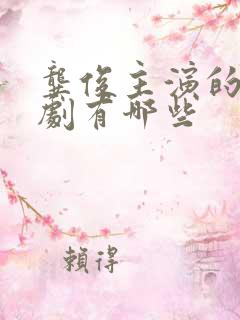 龔俊主演的
劇有哪些
賴得